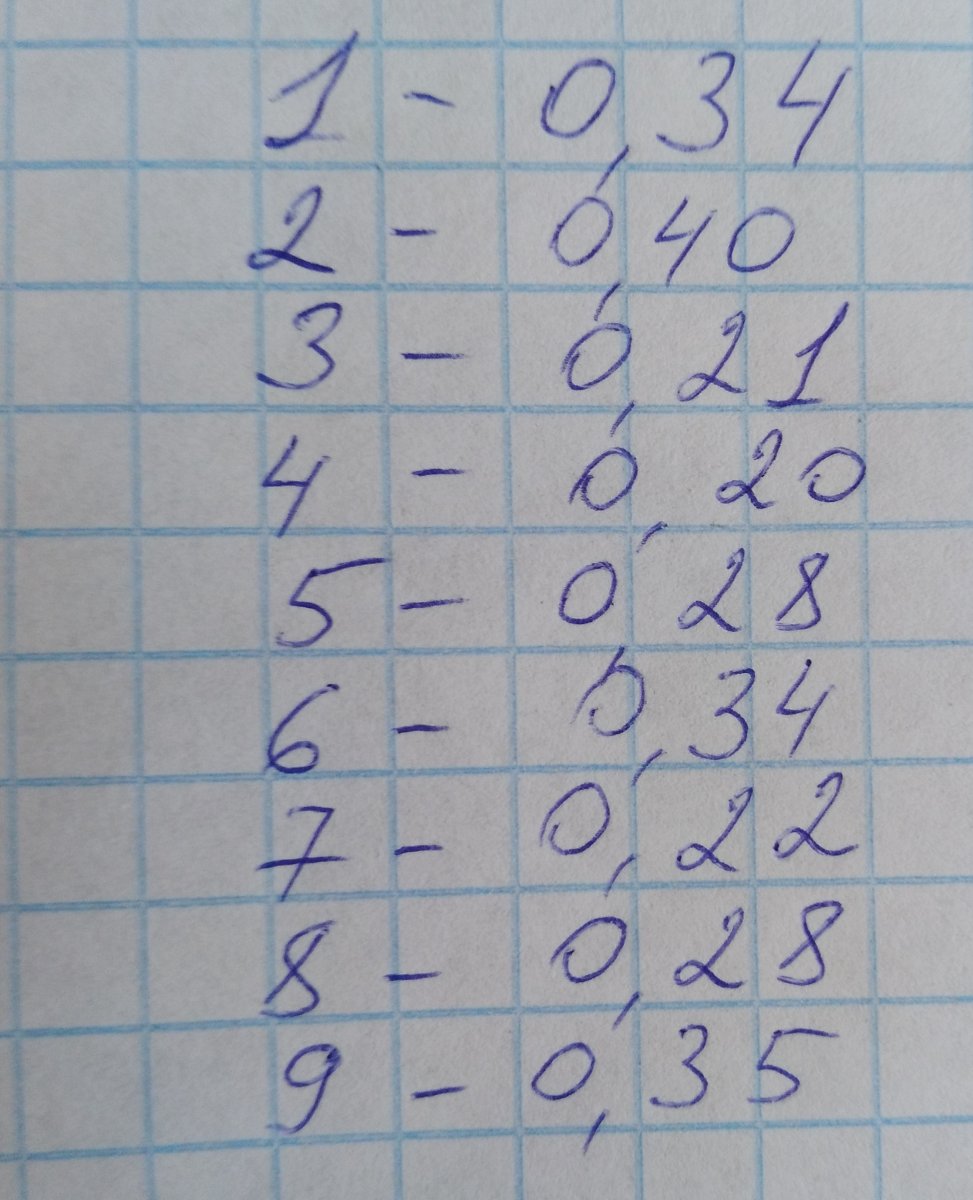 1 - 0,34
2 - 0,40
3 - 0,21
4 - 0,20
5 - 0 28
6 - 0,34
7 - 0,22
8 - 0,28
9 - 0,35